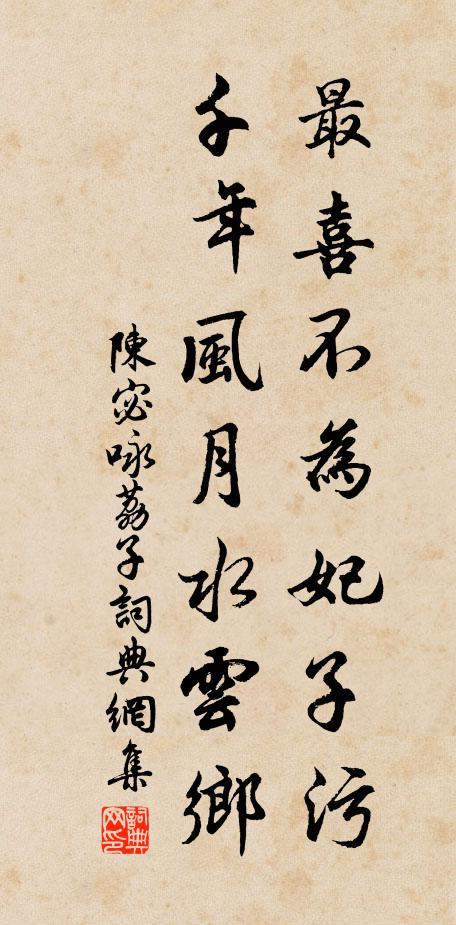 最喜不為妃子污
千年風月水雲鄉
陳宓咏荔子詞典網集
詞典网印